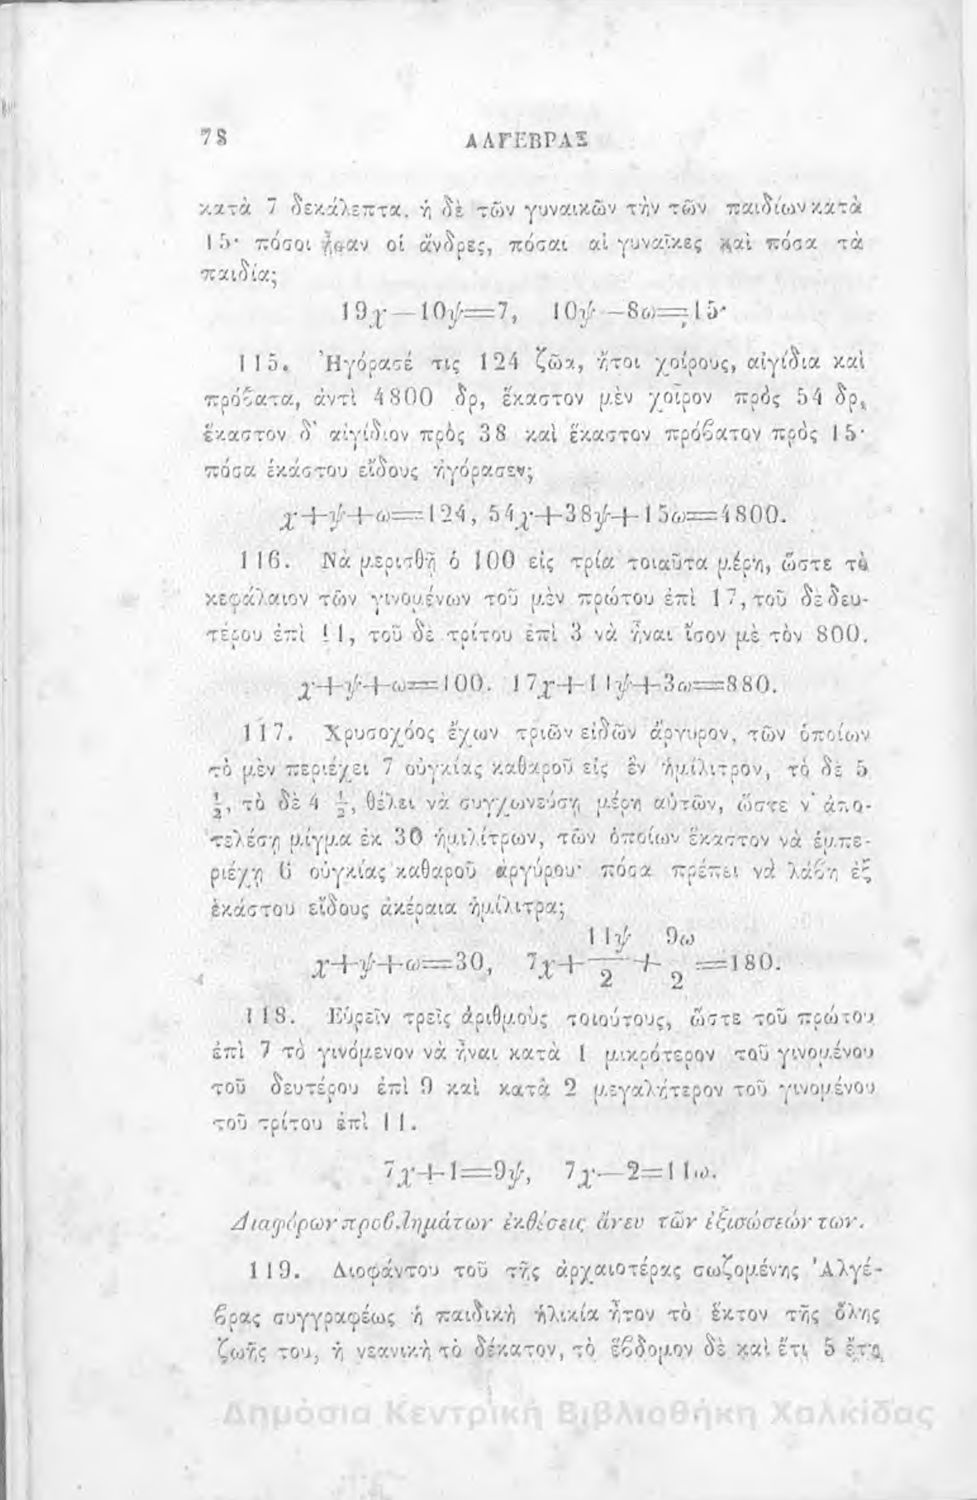 78 ΑΛΓΕΒΡΑΣ
κατὰ 7 δεκάλεπτα, ἡ δὲ τῶν γυναικῶν τὴν τῶν παιδίων κατὰ
15· πόσοι ἦσαν οἱ ἄνδρες, πόσαι αἱ γυναῖκες καὶ πόσα τὰ
παιδία;
19χ—10ψ=7, 10ψ—8ω=15·
115. Ἠγόρασέ τις 124 ζῶα, ἤτοι χοίρους, αἰγίδια καὶ
πρόβατα, ἀντὶ 4800 δρ, ἕκαστον μὲν χοῖρον πρὸς 54 δρ,
ἕκαστον δ' αἰγίδιον πρὸς 38 καὶ ἕκαστον πρόβατον πρὸς 15·
πόσα ἑκάστου εἴδους ἠγόρασεν;
χ+ψ+ω=124, 54χ+38ψ+15ω=4800.
116. Νὰ μερισθῇ ὁ 100 εἰς τρία τοιαῦτα μέρη, ὥστε τὸ
κεφάλαιον τῶν γινομένων τοῦ μὲν πρώτου ἐπὶ 17, τοῦ δὲ δευ-
τέρου ἐπὶ 11, τοῦ δὲ τρίτου ἐπὶ 3 νὰ ἦναι ἴσον μὲ τὸν 800.
χ+ψ+ω=100. 17χ+11ψ+3ω=880.
117. Χρυσοχόος ἔχων τριῶν εἰδῶν ἄργυρον, τῶν ὁποίων
τὸ μὲν περιέχει 7 οὐγκίας καθαροῦ εἰς ἓν ἡμίλιτρον, τὸ δὲ 5
½, τὸ δὲ 4 ½, θέλει νὰ συγχωνεύσῃ μέρη αὐτῶν, ὥστε ν' ἀπο-
τελέσῃ μίγμα ἐκ 30 ἡμιλίτρων, τῶν ὁποίων ἕκαστον νὰ ἐμπε-
ριέχῃ 6 οὐγκίας καθαροῦ ἀργύρου· πόσα πρέπει νὰ λάβῃ ἐξ
ἑκάστου εἴδους ἀκέραια ἡμίλιτρα;
χ+ψ+ω=30, 7χ+11ψ/2+9ω/2=180.
118. Εὑρεῖν τρεῖς ἀριθμοὺς τοιούτους, ὥστε τοῦ πρώτου
ἐπὶ 7 τὸ γινόμενον νὰ ἦναι κατὰ 1 μικρότερον τοῦ γινομένου
τοῦ δευτέρου ἐπὶ 9 καὶ κατὰ 2 μεγαλήτερον τοῦ γινομένου
τοῦ τρίτου ἐπὶ 11.
7χ+1=9ψ, 7χ—2=11ω.
Διαφόρων προβλημάτων ἐκθέσεις ἄνευ τῶν ἐξισώσεών των.
119. Διοφάντου τοῦ τῆς ἀρχαιοτέρας σωζομένης Ἀλγέ-
βρας συγγραφέως ἡ παιδικὴ ἡλικία ἦτον τὸ ἕκτον τῆς ὅλης
ζωῆς του, ἡ νεανικὴ τὸ δέκατον, τὸ ἕβδομον δὲ καὶ ἔτι 5 ἔτη
Δημόσια Κεντρική Βιβλιοθήκη Χαλκίδας